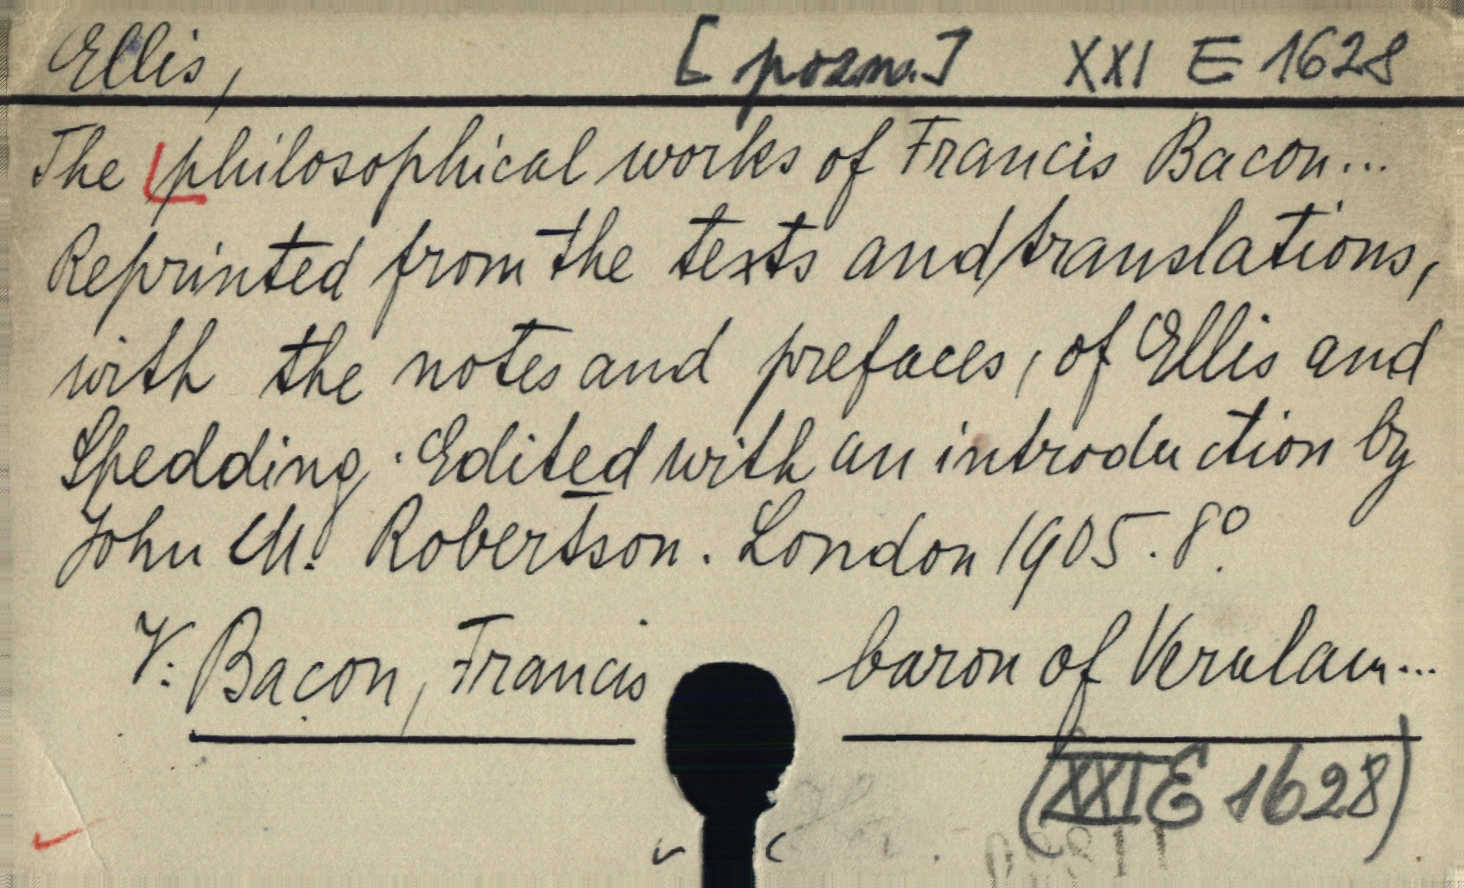 Ellis, [pozn.] XXI E 1628
The philosophical works of Francis Bacon...
Reprinted from the texts and translations,
with the notes and prefaces, of Ellis and
Spedding. Edited with an introduction by
John M. Robertson. London 1905. 8°.
V: Bacon, Francis baron of Verulam...
(XXI E 1628)